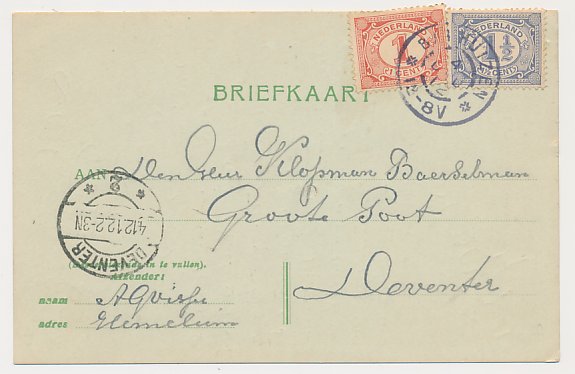 NEDERLAND NEDERLAND
1 1½
1 CENT 1½ CENT
12-8V
BRIEFKAART
AAN Den Heer Klopman Baerselman
Groote Poot
Deventer
4.12.12.2-3N
DEVENTER
(Desverkiezende in te vullen).
Afzender:
naam AGVisser
adres Hemelum